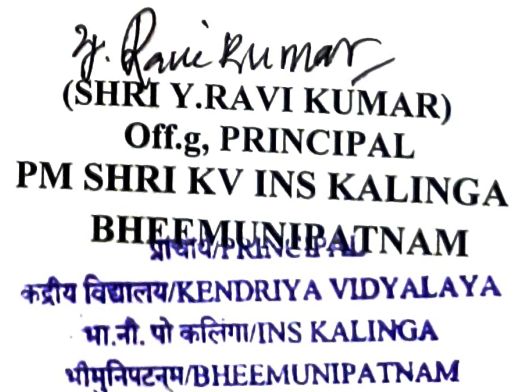 Y. Ravi Kumar
(SHRI Y.RAVI KUMAR)
Off.g, PRINCIPAL
PM SHRI KV INS KALINGA
BHEEMUNIPATNAM
प्राचार्य/PRINCIPAL
कद्रीय विद्यालय/KENDRIYA VIDYALAYA
भा.नौ. पो कलिंगा/INS KALINGA
भीमुनिपटनम/BHEEMUNIPATNAM